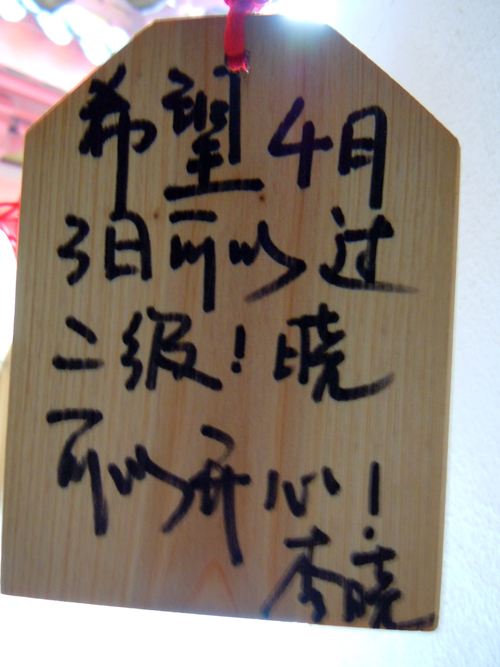 希望4月
3日可以过
二级！晓
可以开心！
李晓